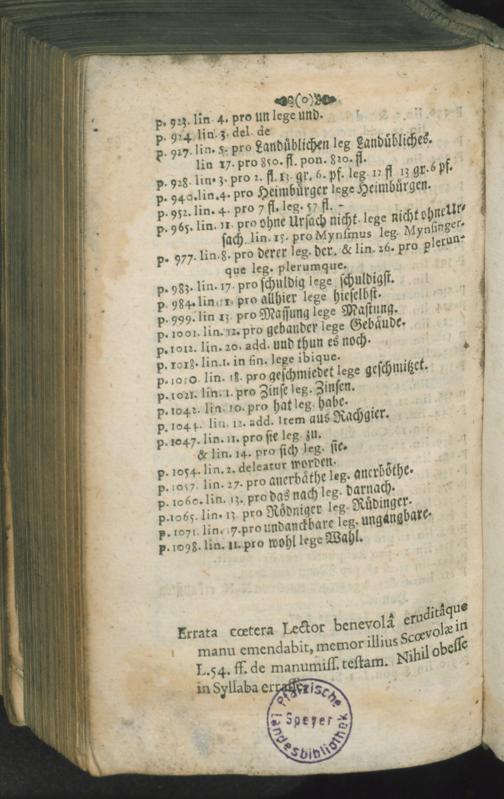 (o)
p. 923. lin. 4. pro un lege und.
p. 924. lin. 3. del. de
p. 927. lin. 5. pro Landüblichen leg Landübliches.
lin 17. pro 850. fl. pon. 820. fl.
p. 928. lin. 3. pro 2. fl. 13. gr. 6. pf. leg. 12 fl 13 gr. 6 pf.
p. 940. lin. 4. pro Heimbürger lege Heimbürgen.
p. 952. lin. 4. pro 7 fl. leg. 57 fl.
p. 965. lin. 11. pro ohne Ursach nicht. lege nicht ohne Ur-
sach. lin. 15. pro Mynsinus leg. Mynsinger.
p. 977. lin. 8. pro derer leg. der. & lin. 26. pro plerun-
que leg. plerumque.
p. 983. lin. 17. pro schuldig lege schuldigst.
p. 984. lin. 11. pro allhier lege hieselbst.
p. 999. lin 13. pro Massung lege Mastung.
p. 1001. lin. 12. pro gebander lege Gebäude.
p. 1012. lin. 20. add. und thun es noch.
p. 1018. lin. 1. in fin. lege ibique.
p. 1020. lin. 18. pro geschmiedet lege geschmitzet.
p. 1021. lin. 1. pro Zinse leg. Zinsen.
p. 1042. lin. 10. pro hat leg. habe.
p. 1044. lin. 12. add. Item aus Rachgier.
p. 1047. lin. 11. pro sie leg. zu.
& lin. 14. pro sich leg. sie.
p. 1054. lin. 2. deleatur worden.
p. 1057. lin. 27. pro anerbäthe leg. anerböthe.
p. 1060. lin. 13. pro das nach leg. darnach.
p. 1065. lin. 13. pro Rödniger leg. Rüdinger.
p. 1071. lin. 7. pro undanckbare leg. ungangbare.
p. 1098. lin. 11. pro wohl lege Wahl.
Errata cœtera Lector benevolâ eruditâque
manu emendabit, memor illius Scœvolæ in
L. 54. ff. de manumiss. testam. Nihil obesse
in Syllaba
Pfälzische
Speyer
Landesbibliothek